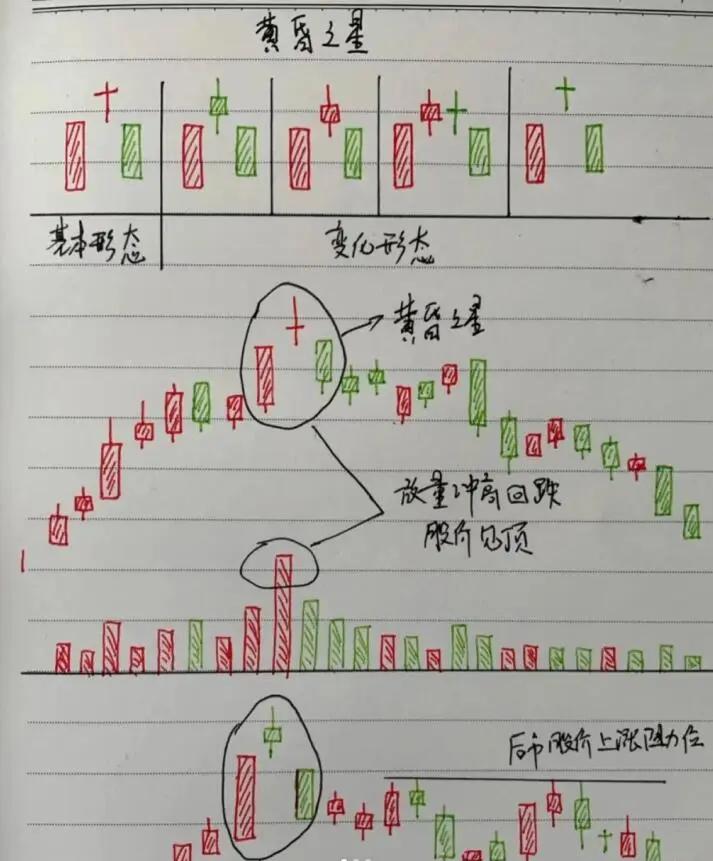 黄昏之星
基本形态
变化形态
黄昏之星
放量冲高回跌
股价见顶
后市股价上涨阻力位